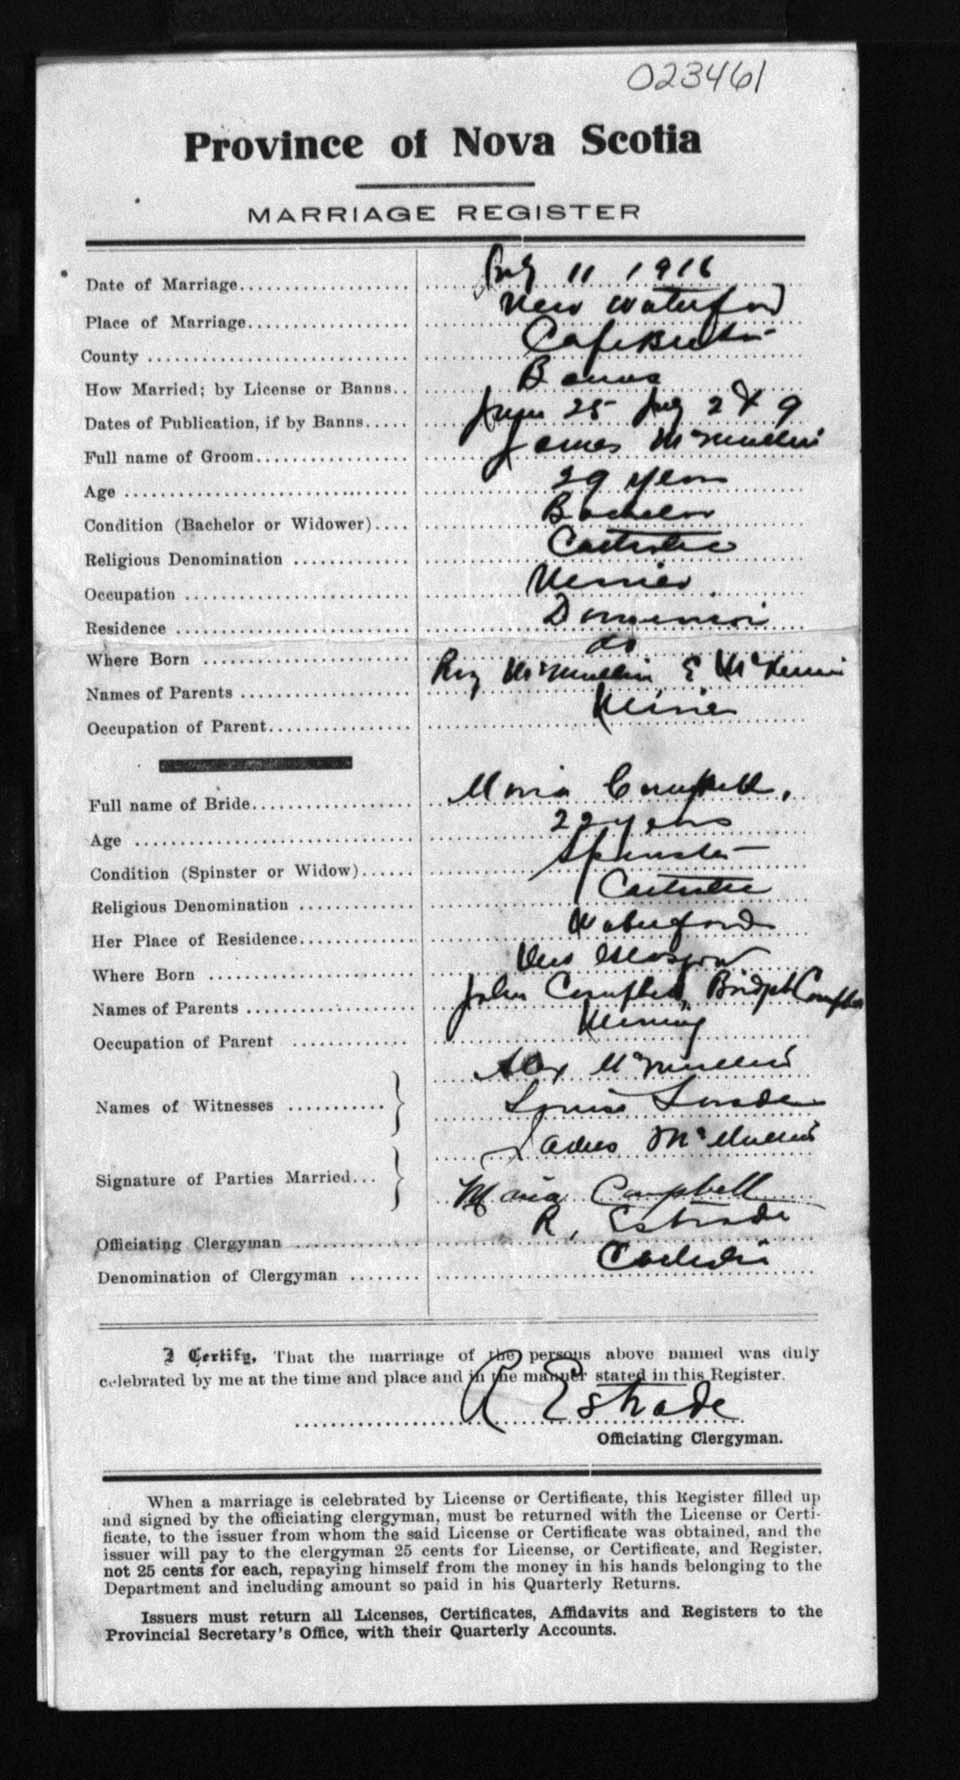 023461
Province of Nova Scotia
MARRIAGE REGISTER
Date of Marriage July 11 1916
Place of Marriage New Waterford
County Cape Breton
How Married; by License or Banns Banns
Dates of Publication, if by Banns June 25 July 2 & 9
Full name of Groom James McMullin
Age 29 years
Condition (Bachelor or Widower) Bachelor
Religious Denomination Catholic
Occupation Miner
Residence Dominion
Where Born do
Names of Parents McMullin E
Occupation of Parent Miner
Full name of Bride Maria Campbell,
Age 22 years
Condition (Spinster or Widow) Spinster
Religious Denomination Catholic
Her Place of Residence Waterford
Where Born New Glasgow
Names of Parents John Campbell, Bridget Campbell
Occupation of Parent Mining
Alex McMullin
Names of Witnesses Louise
James McMullin
Signature of Parties Married
Maria Campbell
Officiating Clergyman R. Estrade
Denomination of Clergyman Catholic
I Certify, That the marriage of the persons above named was duly
celebrated by me at the time and place and in the manner stated in this Register.
R Estrade
Officiating Clergyman.
When a marriage is celebrated by License or Certificate, this Register filled up
and signed by the officiating clergyman, must be returned with the License or Certi-
ficate, to the issuer from whom the said License or Certificate was obtained, and the
issuer will pay to the clergyman 25 cents for License, or Certificate, and Register,
not 25 cents for each, repaying himself from the money in his hands belonging to the
Department and including amount so paid in his Quarterly Returns.
Issuers must return all Licenses, Certificates, Affidavits and Registers to the
Provincial Secretary's Office, with their Quarterly Accounts.